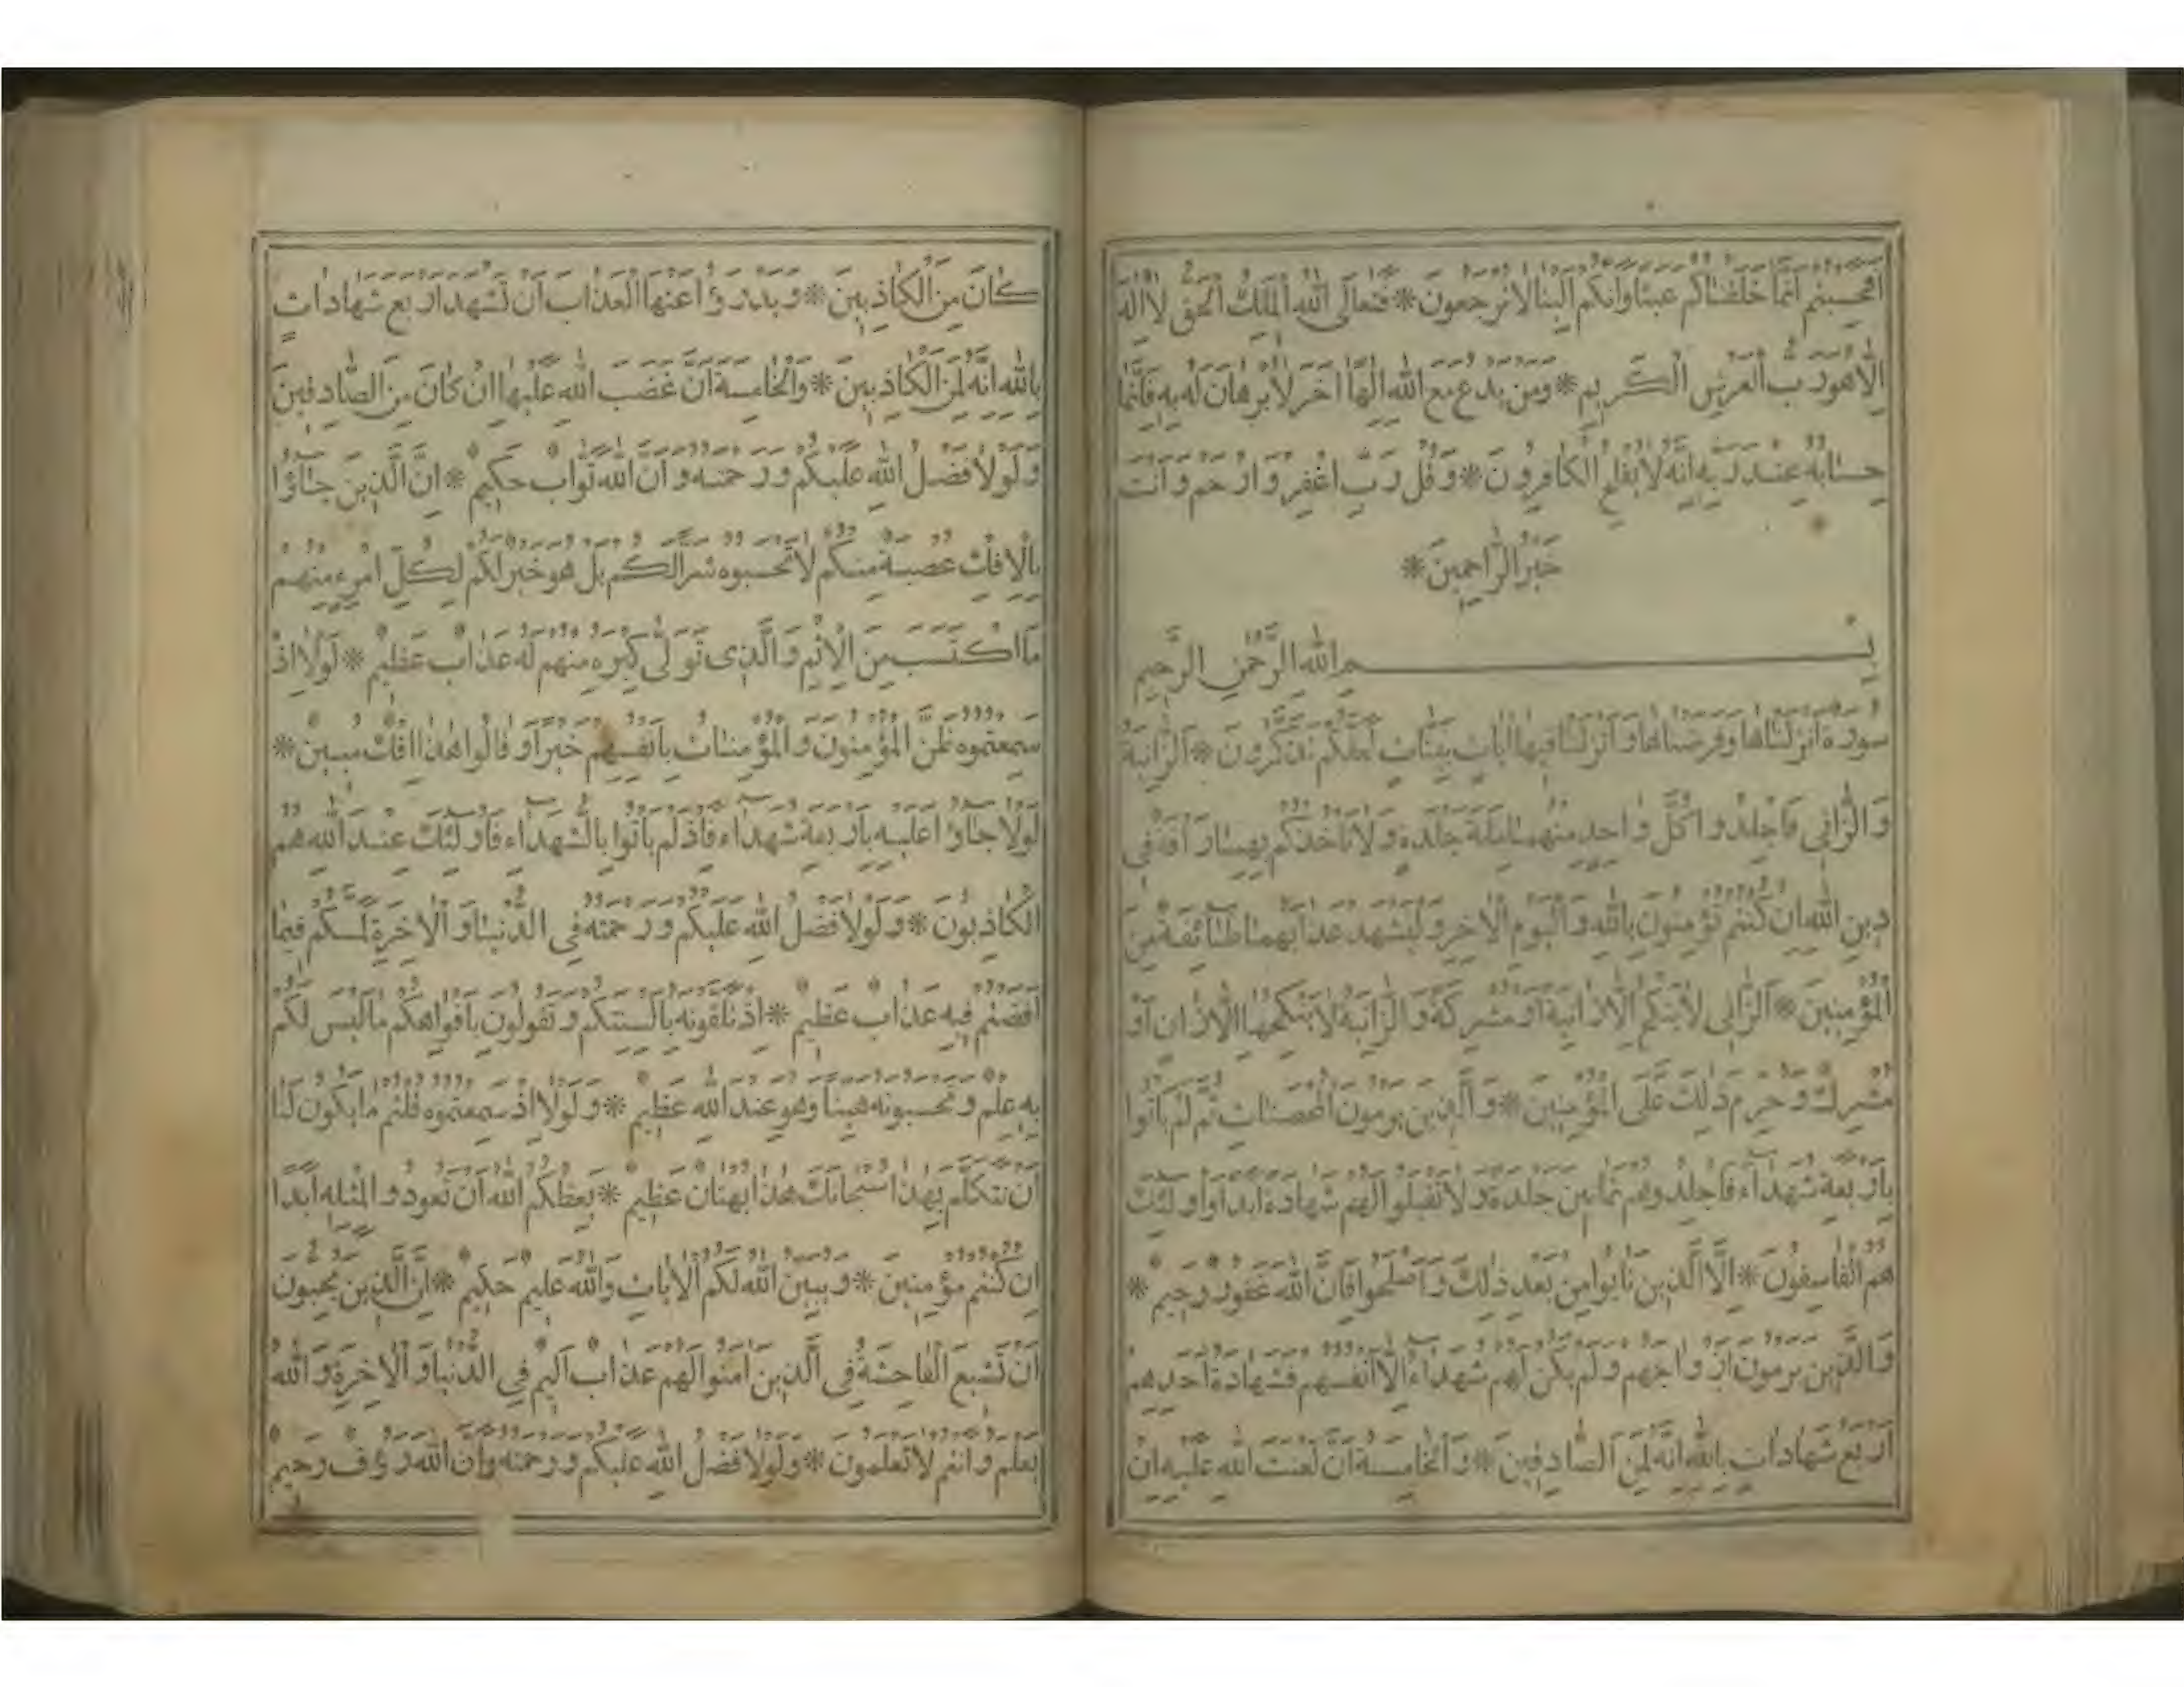 افحسبتم انما خلقناكم عبثا وانكم الينا لا ترجعون * فتعالى الله الملك الحق لا اله
الا هو رب العرش الكريم * ومن يدع مع الله الها اخر لا برهان له به فانما
حسابه عند ربه انه لا يفلح الكافرون * وقل رب اغفر وارحم وانت
خير الراحمين *
بسم الله الرحمن الرحيم
سورة انزلناها وفرضناها وانزلنا فيها ايات بينات لعلكم تذكرون * الزانية
والزاني فاجلدوا كل واحد منهما مائة جلدة ولا تاخذكم بهما رافة في
دين الله ان كنتم تؤمنون بالله واليوم الاخر وليشهد عذابهما طائفة من
المؤمنين * الزاني لا ينكح الا زانية او مشركة والزانية لا ينكحها الا زان او
مشرك وحرم ذلك على المؤمنين * والذين يرمون المحصنات ثم لم ياتوا
باربعة شهداء فاجلدوهم ثمانين جلدة ولا تقبلوا لهم شهادة ابدا واولئك
هم الفاسقون * الا الذين تابوا من بعد ذلك واصلحوا فان الله غفور رحيم *
والذين يرمون ازواجهم ولم يكن لهم شهداء الا انفسهم فشهادة احدهم
اربع شهادات بالله انه لمن الصادقين * والخامسة ان لعنت الله عليه ان
كان من الكاذبين * ويدرؤا عنها العذاب ان تشهد اربع شهادات
بالله انه لمن الكاذبين * والخامسة ان غضب الله عليها ان كان من الصادقين
ولولا فضل الله عليكم ورحمته وان الله تواب حكيم * ان الذين جاؤا
بالافك عصبة منكم لا تحسبوه شرا لكم بل هو خير لكم لكل امرء منهم
ما اكتسب من الاثم والذي تولى كبره منهم له عذاب عظيم * لولا اذ
سمعتموه ظن المؤمنون والمؤمنات بانفسهم خيرا وقالوا هذا افك مبين *
لولا جاؤا عليه باربعة شهداء فاذ لم ياتوا بالشهداء فاولئك عند الله هم
الكاذبون * ولولا فضل الله عليكم ورحمته في الدنيا والاخرة لمسكم فيما
افضتم فيه عذاب عظيم * اذ تلقونه بالسنتكم وتقولون بافواهكم ما ليس لكم
به علم وتحسبونه هينا وهو عند الله عظيم * ولولا اذ سمعتموه قلتم ما يكون لنا
ان نتكلم بهذا سبحانك هذا بهتان عظيم * يعظكم الله ان تعودوا لمثله ابدا
ان كنتم مؤمنين * ويبين الله لكم الايات والله عليم حكيم * ان الذين يحبون
ان تشيع الفاحشة في الذين امنوا لهم عذاب اليم في الدنيا والاخرة والله
يعلم وانتم لا تعلمون * ولولا فضل الله عليكم ورحمته وان الله رؤف رحيم